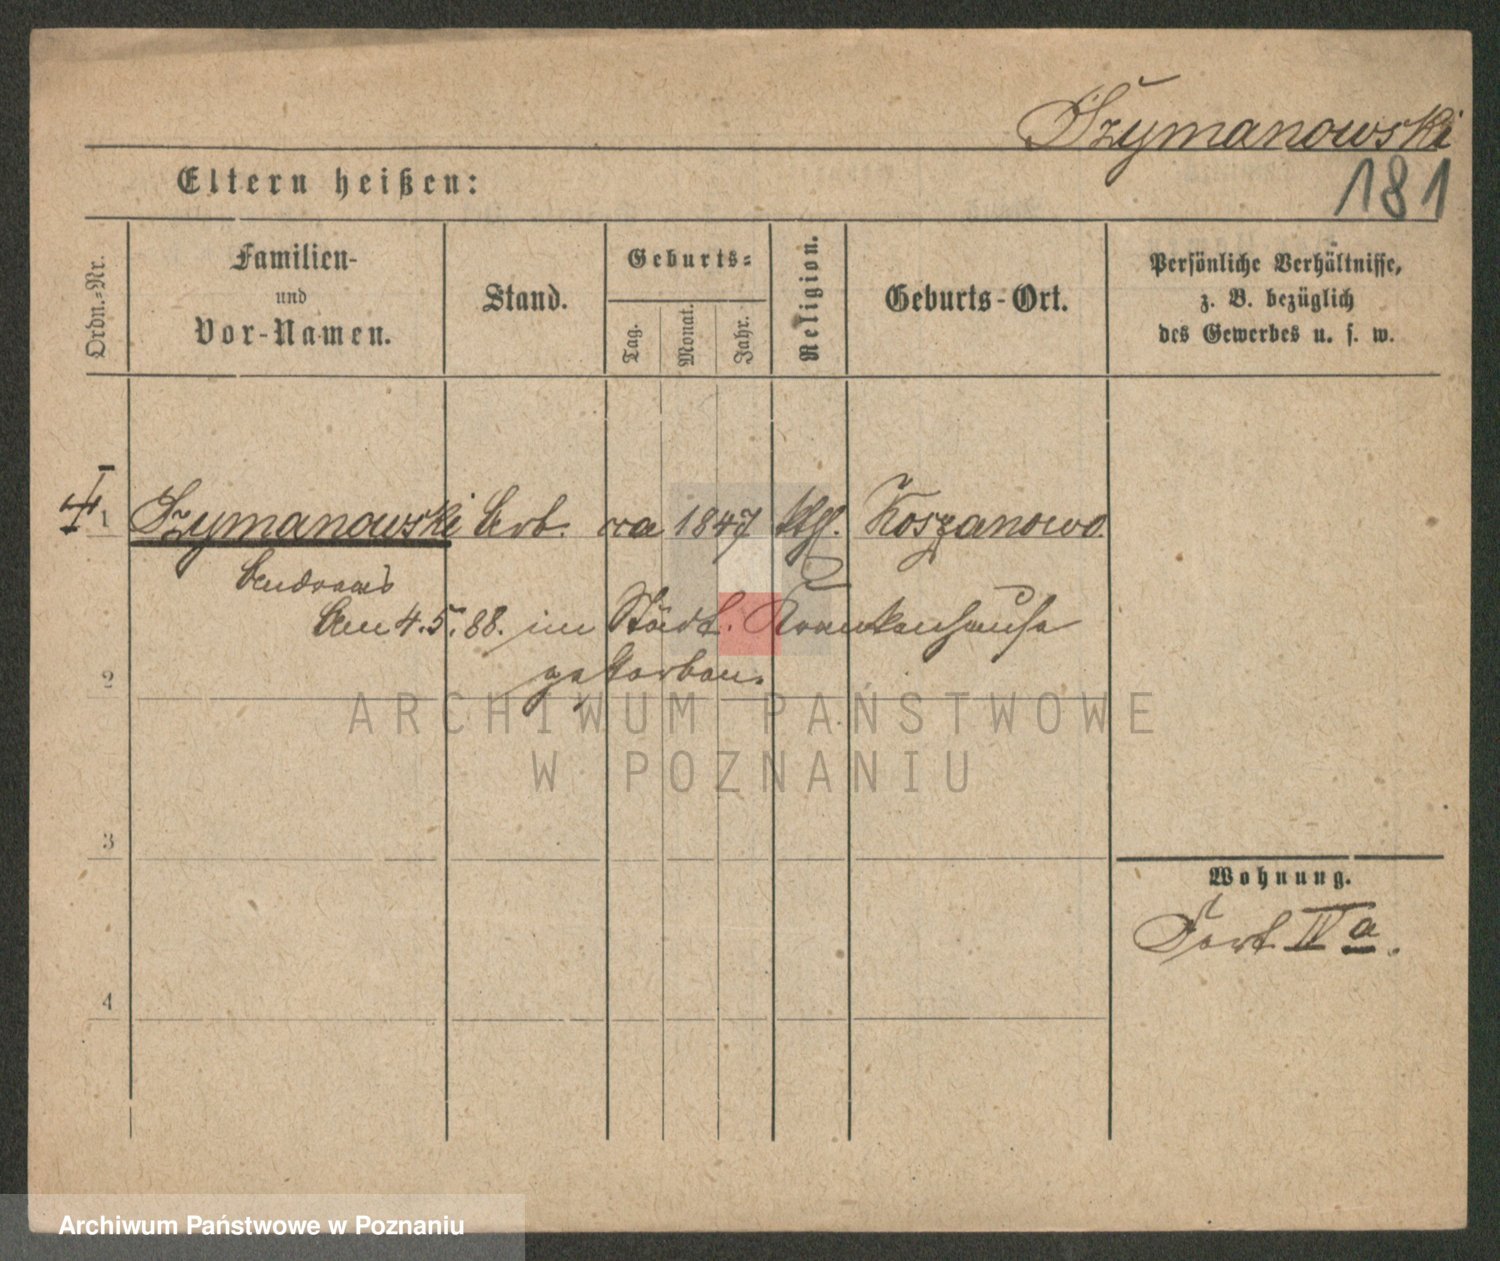 Szymanowski
181
Eltern heißen:
Ordn.-Nr.
Familien-
und
Vor-Namen.
Stand.
Geburts-
Tag.
Monat.
Jahr.
Religion.
Geburts-Ort.
Persönliche Verhältnisse,
z. B. bezüglich
des Gewerbes u. s. w.
1 Szymanowski Arb. cca 1847 ktℏ. Koszanowo
Andreas
Am 4.5.88. im Städt. Krankenhause
gestorben.
2
3
4
Wohnung.
Fort IVa.
ARCHIWUM PAŃSTWOWE
W POZNANIU
Archiwum Państwowe w Poznaniu